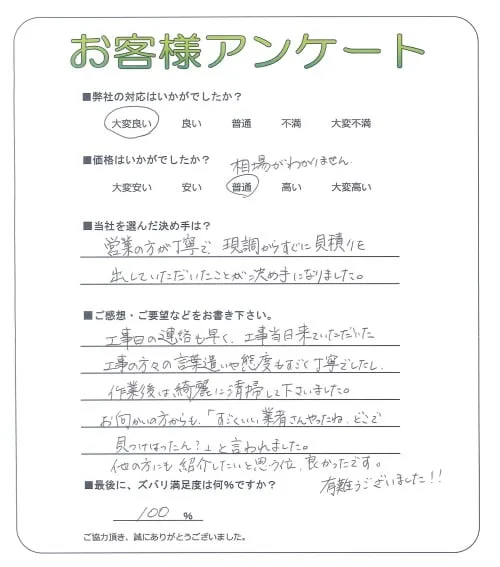 お客様アンケート
■弊社の対応はいかがでしたか？
大変良い 良い 普通 不満 大変不満
■価格はいかがでしたか？ 相場がわかりません。
大変安い 安い 普通 高い 大変高い
■当社を選んだ決め手は？
営業の方が丁寧で、現調からすぐに見積りを
出していただいたことが決め手になりました。
■ご感想・ご要望などをお書き下さい。
工事日の連絡も早く、工事当日来ていただいた
工事の方々の言葉遣いや態度もすごく丁寧でしたし、
作業後は綺麗に清掃して下さいました。
お向かいの方からも、「すごくいい業者さんやったね、どこで
見つけはったん？」と言われました。
他の方にも紹介したいと思う位、良かったです。
有難うございました!!
■最後に、ズバリ満足度は何%ですか？
100 %
ご協力頂き、誠にありがとうございました。